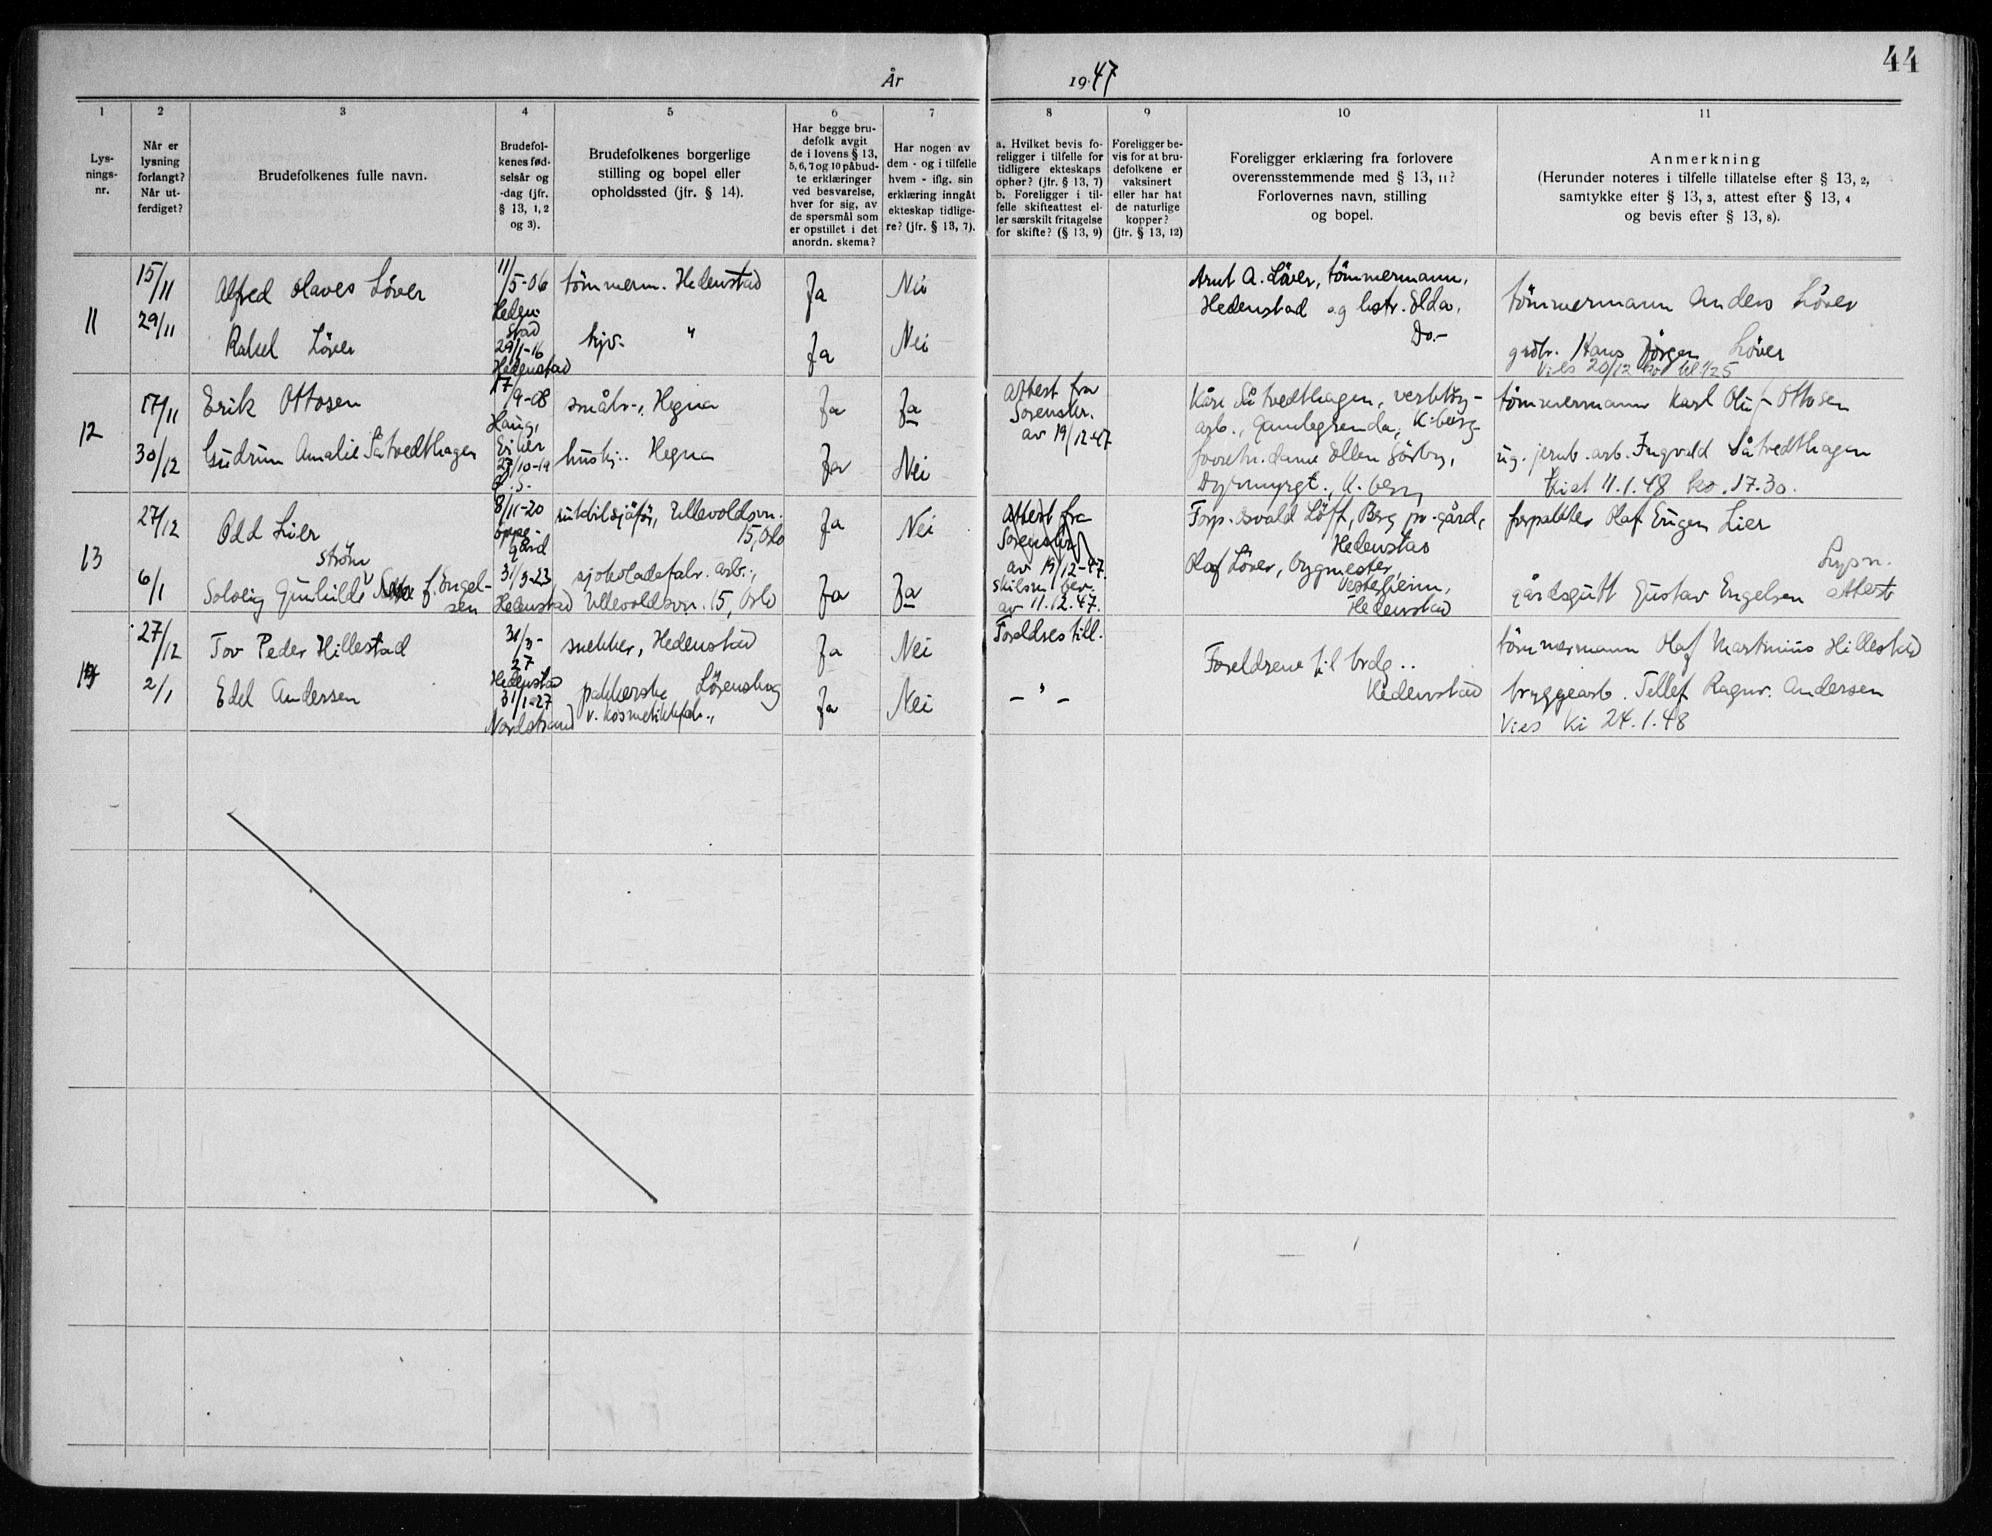 44
År 1947
1 2 3 4 5 6 7 8 9 10 11
Lys-
nings-
nr.
Når er
lysning
forlangt?
Når ut-
ferdiget?
Brudefolkenes fulle navn.
Brudefol-
kenes fød-
selsår og
-dag (jfr.
§ 13, 1, 2
og 3).
Brudefolkenes borgerlige
stilling og bopel eller
opholdssted (jfr. § 14).
Har begge bru-
defolk avgit
de i lovens § 13,
5, 6, 7 og 10 påbud-
te erklæringer
ved besvarelse,
hver for sig, av
de spørsmål som
er opstillet i det
anordn. skema?
Har nogen av
dem - og i tilfelle
hvem - iflg. sin
erklæring inngåt
ekteskap tidlige-
re? (jfr. § 13, 7).
a. Hvilket bevis fo-
religger i tilfelle for
tidligere ekteskaps
ophør? (jfr. § 13, 7)
b. Foreligger i til-
felle skifteattest el-
ler særskilt fritagelse
for skifte? (§ 13, 9)
Foreligger be-
vis for at bru-
defolkene er
vaksinert
eller har hat
de naturlige
kopper?
(jfr. § 13, 12)
Foreligger erklæring fra forlovere
overensstemmende med § 13, 11?
Forlovernes navn, stilling
og bopel.
Anmerkning
(Herunder noteres i tilfelle tillatelse efter § 13, 2,
samtykke efter § 13, 3, attest efter § 13, 4
og bevis efter § 13, 8).
11
15/11
29/11
Alfred Olaves Löver
Rakel Löver
11/5-06
Heden-
stad
29/1-16
Hedenstad
tömmerm. Hedenstad
hjv. "
Ja
Ja
Nei
Nei
Arnt A. Löver, tömmermann,
Hedenstad og hstr. Olda,
Do.-
tömmermann Anders Löver
grdbr. Hans Jörgen Löver
Vies 20/12
12
17/11
30/12
Erik Ottosen
Gudrun Amalie Såtvedthagen
17/9-08
Haug,
Eiker
/10-19
småbr., Hegna
hushj.. Hegna
Ja
Ja
Ja
Nei
Attest fra
Sorenskr.
av 19/12-47
Kåre Såtvedthagen, verktöy-
arb., Gamlegrenda, K-berg
forretn.dame Ellen Sörby,
Dyrmyrgt., K.berg
tömmermann Karl Oluf Ottosen
ug. jernb.arb. Ingvald Såtvedthagen
Viet 11.1.48 ko. 17.30.
13
27/12
6/1
Odd Lier
Ström
Solveig Gunhilde f. Engel-
sen
8/11-20
Oppe-
gård
31/3-23
Hedenstad
rutebilsjåför, Ullevoldsvn.
15, Oslo
sjokoladefabr. arb.,
Ullevoldsvn. 15, Oslo
Ja
Ja
Nei
Ja
Attest fra
Sorenskr.
av 19/12-47.
skilsm. bev.
av 11.12.47.
Forp. Osvald Löft, Berg pr.gård,
Hedenstad
Olaf Löver, bygmester,
Vesteheim,
Hedenstad
forpakter Olaf Eugen Lier
Lysn.
gårdsgutt Gustav Engelsen Attest
14
27/12
2/1
Tov Peder Hillestad
Edel Andersen
31/3-
27
Hedenstad
31/1-27
Nordstrand
snekker, Hedenstad
pakkerske Lörenskog
v. kosmetikkfabr.,
Ja
Ja
Nei
Nei
Foreldres till.
- " -
Foreldrene til brdg..
Hedenstad
tömmermann Olaf Martinius Hillestad
bryggearb. Tellef Ragnv. Andersen
Vies Ki 24.1.48